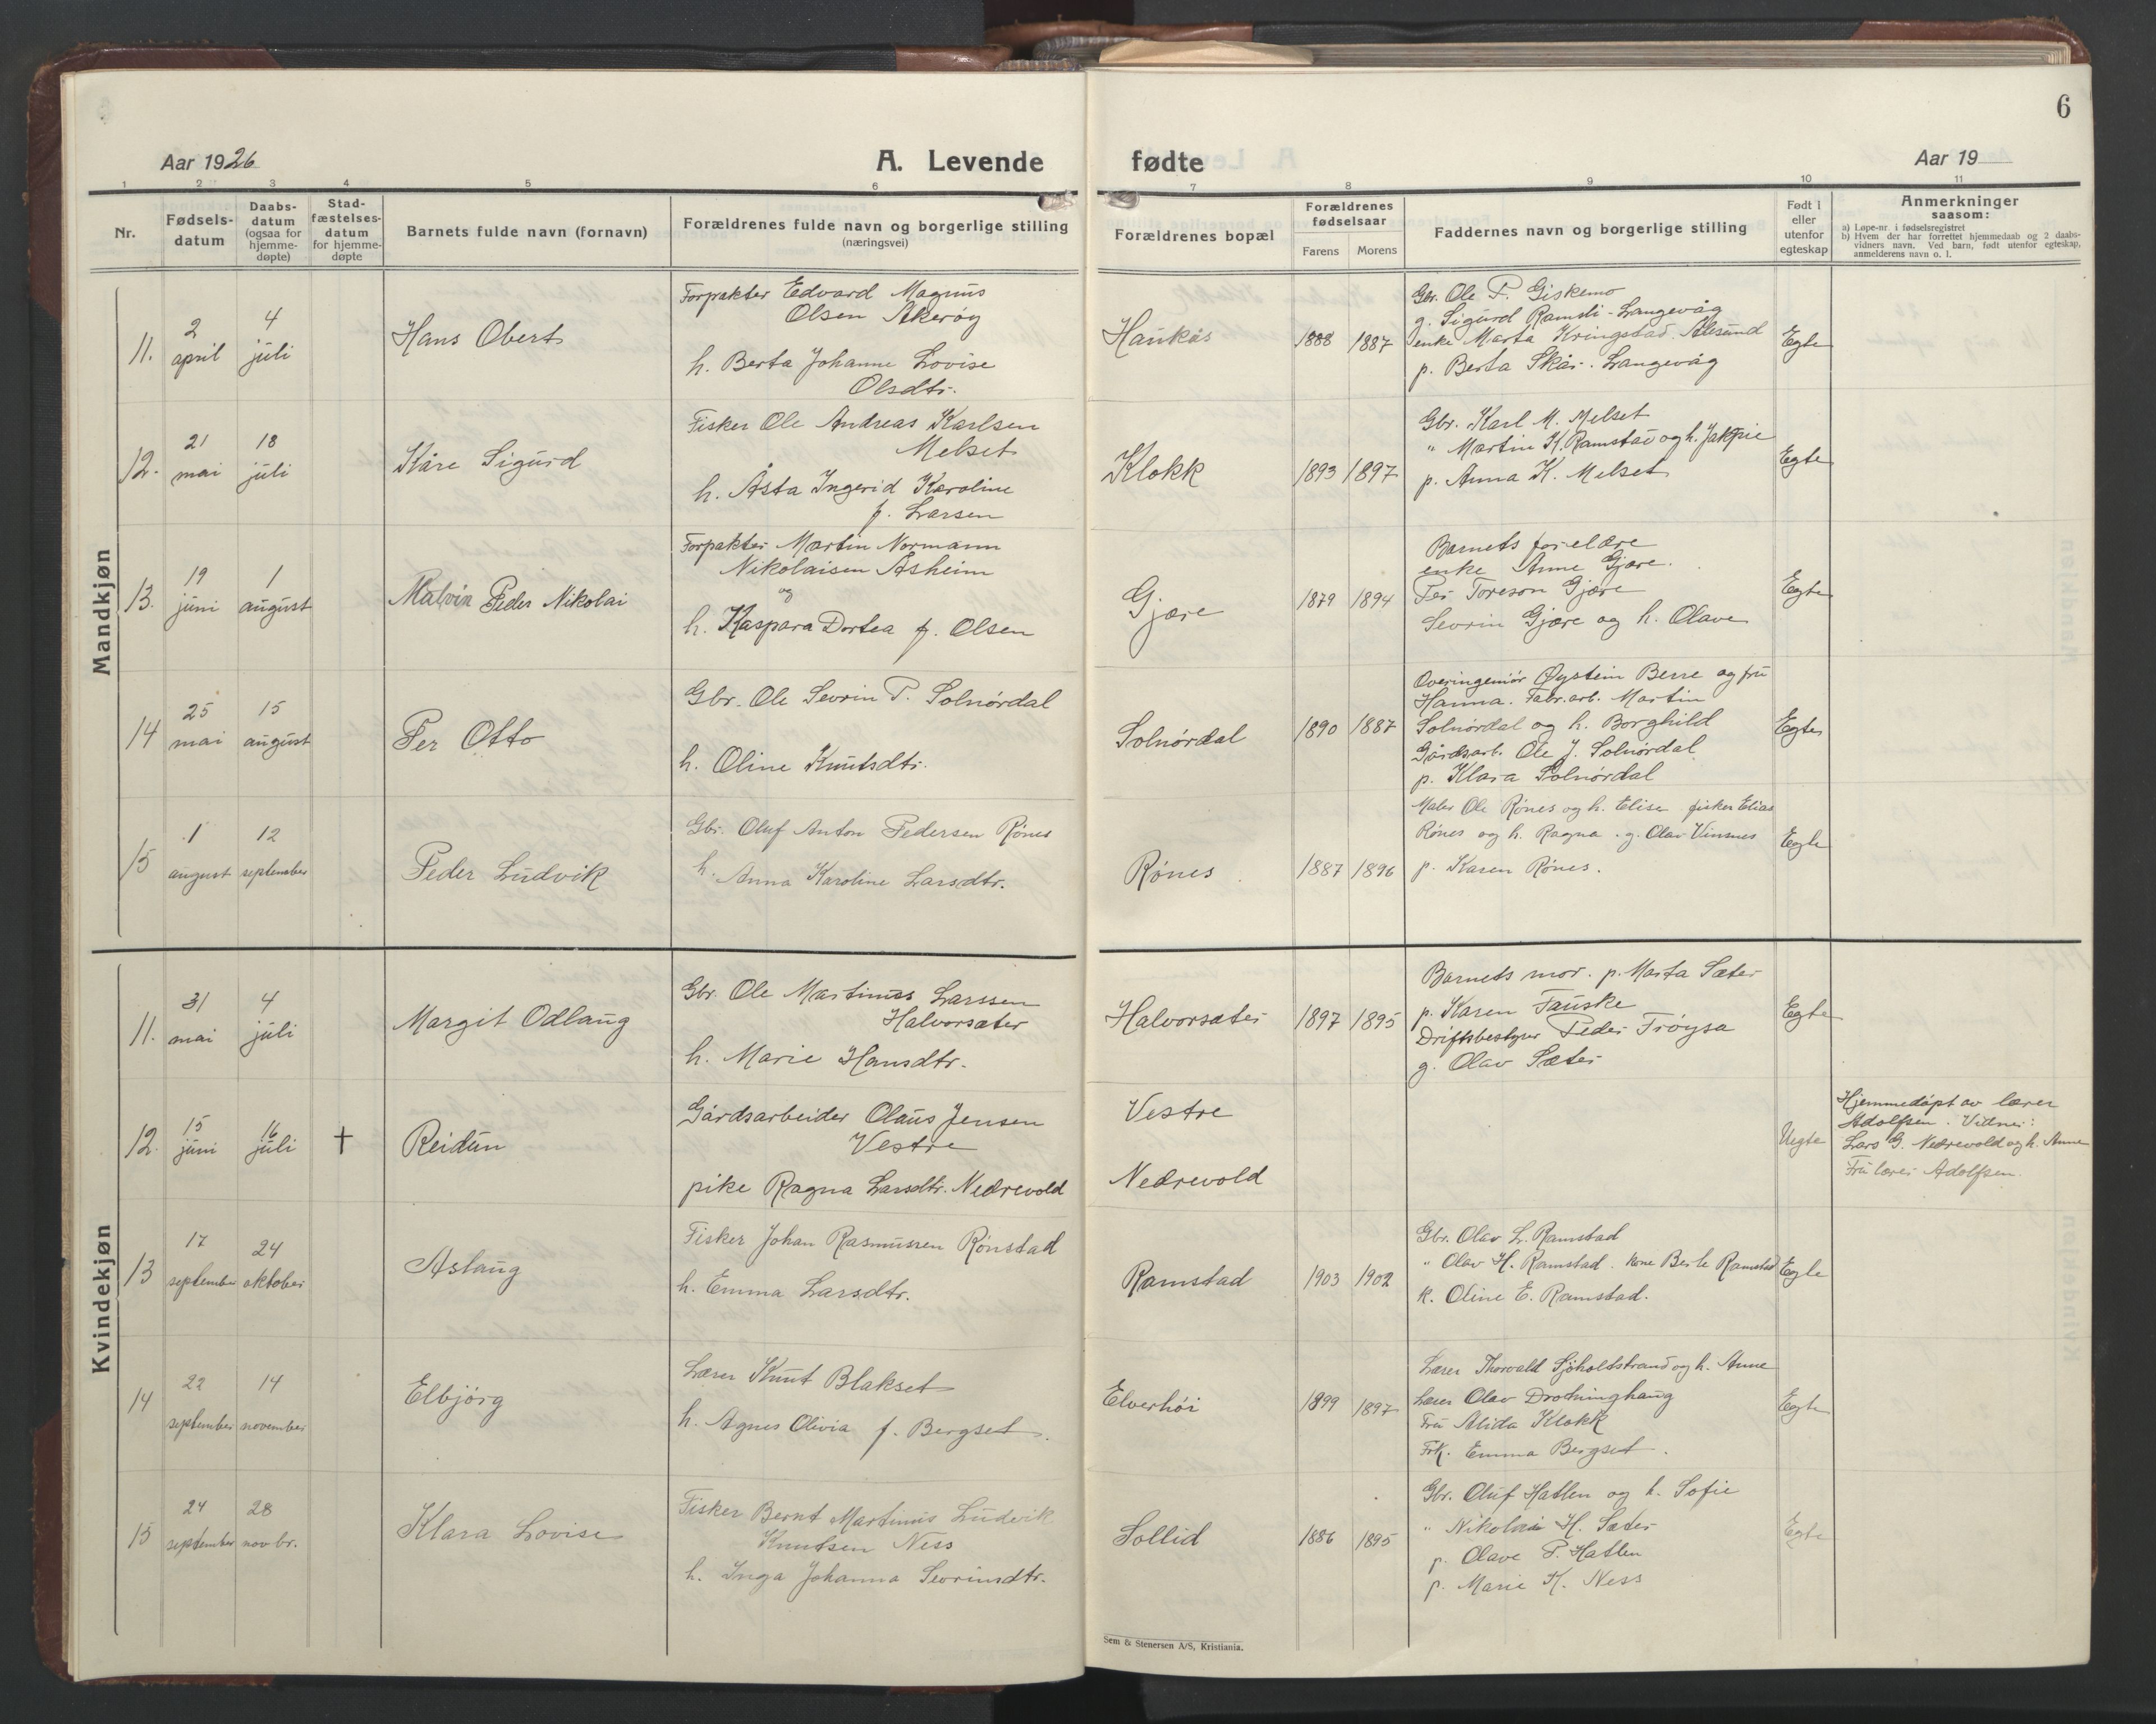 6
Aar 1926
A. Levende fødte
Aar 19
1 2 3 4 5 6 7 8 9 10 11
Nr.
Fødsels-
datum
Daabs-
datum
(ogsaa for
hjemme-
døpte)
Stad-
fæstelses-
datum
for hjemme-
døpte
Barnets fulde navn (fornavn)
Forældrenes fulde navn og borgerlige stilling
(næringsvei)
Forældrenes bopæl
Forældrenes
fødselsaar
Farens Morens
Faddernes navn og borgerlige stilling
Født i
eller
utenfor
egteskap
Anmerkninger
saasom:
a) Løpe-nr. i fødselsregistret
b) Hvem der har forrettet hjemmedaab og 2 daabs-
vidners navn. Ved barn, født utenfor egteskap,
anmelderens navn o. l.
Mandkjøn
11.
2
april
4
juli
Hans Obert
Forpakter Edvard Magnus
Olsen Åkerøy
h. Berta Johanne Lovise
Olsdtr.
Haukås
1888 1887
Gbr. Ole P. Giskemo
g. Sigurd Ramsli - Langevåg
enke Marta Kringstad. Ålesund
p. Berta Skår. Langevåg
Egte
12.
21
mai
18
juli
Kåre Sigurd
Fisker Ole Andreas Karlsen
Melset
h. Åsta Ingerid Karoline
f. Larsen
Klokk
1893 1897
Gbr. Karl M. Melset
" Martin K. Ramstad og h.
p. Anna K. Melset
Egte
13.
19
juni
1
august
Malvin Peder Nikolai
Forpakter Martin Normann
Nikolaisen Åsheim
og
h. Kaspara Dortea f. Olsen
Gjære
1879 1894
Barnets foreldre
enke Anne Gjære.
Per Toreson Gjære
Sevrin Gjære og h. Olave
Egte
14
25
mai
15
august
Per Otto
Gbr. Ole Sevrin P. Solnørdal
h. Oline Knutsdtr.
Solnørdal
1890 1887
Overingeniør Øystein Berre og fru
Hanna. Fabr.arb. Martin
Solnørdal og h. Borghild
Gårdsarb. Ole J. Solnørdal
p. Klara Solnørdal
Egte
15
1
august
12
september
Peder Ludvik
Gbr. Oluf Anton Pedersen Rønes
h. Anna Karoline Larsdtr.
Rønes
1887 1896
Maler Ole Rønes og h. Elise fisker Elias
Rønes og h. Ragna. g. Olav Vinsnes
p. Karen Rønes.
Egte
Kvindekjøn
11.
31
mai
4
juli
Margit Odlaug
Gbr. Ole Martinus Larssen
Halvorsæter
h. Marie Hansdtr.
Halvorsæter
1897 1895
Barnets mor. p. Marta Sæter
p. Karen Fauske
Driftsbestyrer Peder Frøysa
g. Olav Sæter
Egte
12.
15
juni
16
juli
†
Reidun
Gårdsarbeider Olaus Jensen
Vestre
pike Ragna Larsdtr. Nedrevold
Vestre
Nedrevold
Uegte
Hjemmedøpt av lærer
Adolfsen. Vidner:
Lars G. Nedrevold og h. Anne
Fru lærer Adolfsen.
13
17
september
24
oktober
Aslaug
Fisker Johan Rasmussen Rønstad
h. Emma Larsdtr.
Ramstad
1903 1902
Gbr. Olav L. Ramstad
" Olav H. Ramstad. kone Berte Ramstad
k. Oline E. Ramstad.
Egte
14
22
september
14
november
Elbjörg
Lærer Knut Blakset
h. Agnes Olivia f. Bergset.
Elverhöi
1899 1897
Lærer Thorvald Sjöholtstrand og h. Anne
Lærer Olav Drotninghaug
Fru Alida Klokk
Frk. Emma Bergset.
Egte
15
24
september
28
novbr.
Klara Lovise
Fisker Bernt Martinus Ludvik
Knutsen Ness
h. Inga Johanna Sevrinsdtr.
Sollid
1886 1895
Gbr. Oluf Hatlen og h. Sofie
" Nikolai H. Sæter
p. Olave P. Hatlen
p. Marie K. Ness
Egte
Sem & Stenersen A/S, Kristiania.